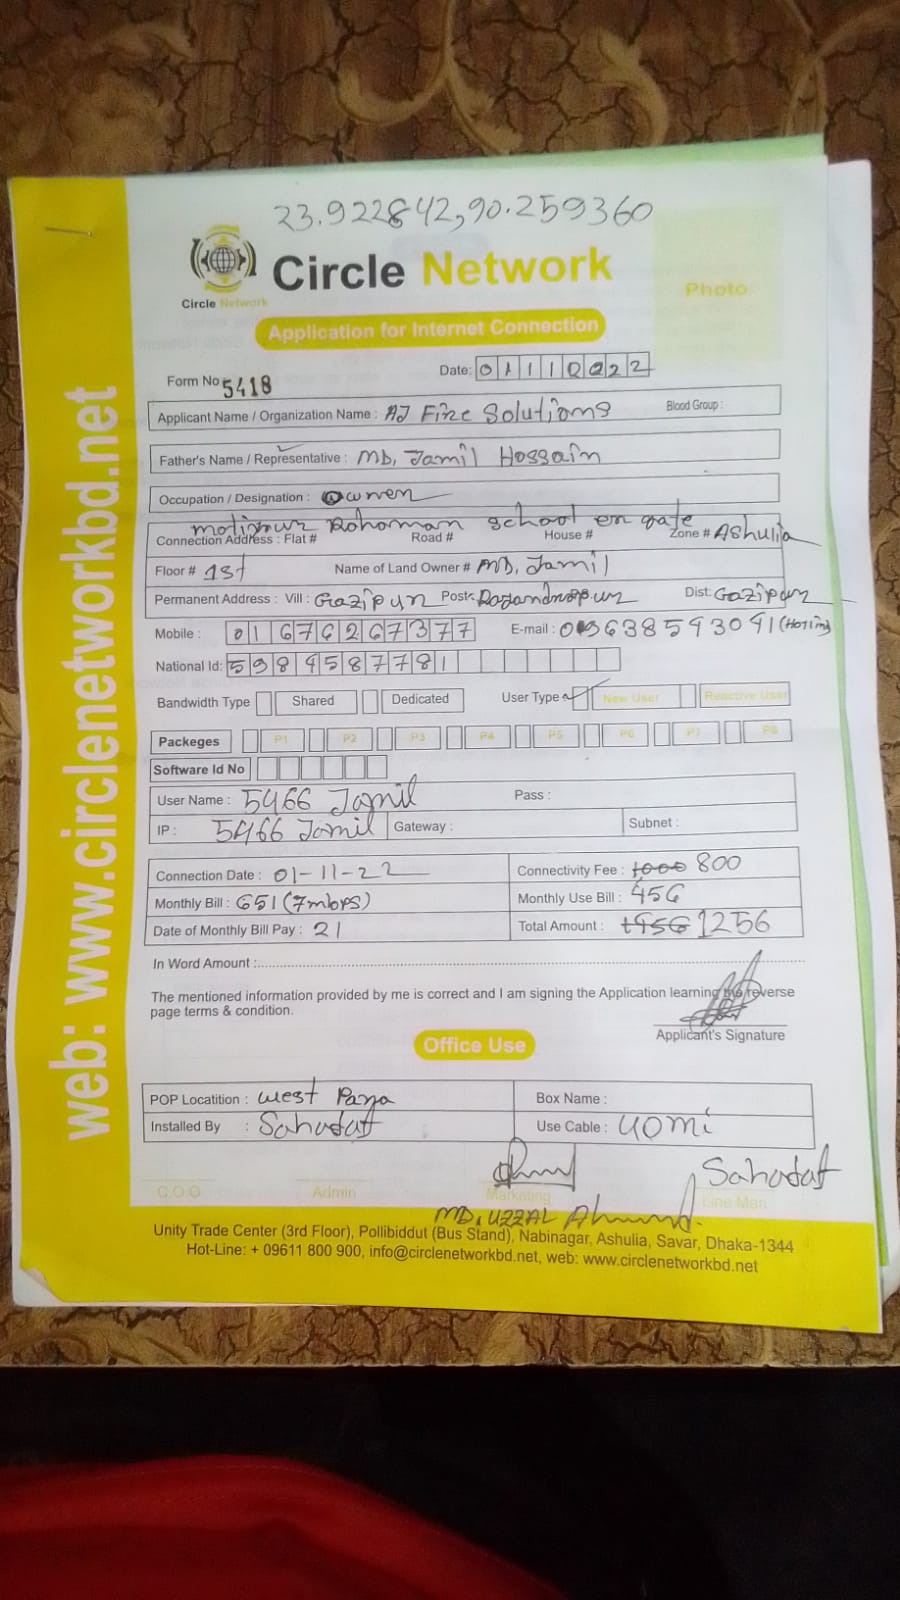 23.922842,90.259360
Circle Network
Circle Network
Photo
Application for Internet Connection
Form No 5418
Date: 01112022
Applicant Name / Organization Name : AJ Fire Solutions Blood Group :
Father's Name / Representative : MD, Jamil Hossain
Occupation / Designation : Owner
Motiour Rohoman school er gate
Connection Address : Flat # Road # House # Zone # Ashulia
Floor # 1st Name of Land Owner # MD, Jamil
Permanent Address : Vill : Gazipur Post: Dist: Gazipur
Mobile : 01676267377 E-mail : 09638593091 (Hotline)
National Id: 5984587781
Bandwidth Type Shared Dedicated User Type New User Reactive User
Packeges P1 P2 P3 P4 P5 P6 P7 P8
Software Id No
User Name : 5466 Jamil Pass :
IP : 5466 Jamil Gateway : Subnet :
Connection Date : 01-11-22 Connectivity Fee : 1000 800
Monthly Bill : 651 (7mbps) Monthly Use Bill : 456
Date of Monthly Bill Pay : 21 Total Amount : 1456 1256
In Word Amount :
The mentioned information provided by me is correct and I am signing the Application learning the reverse
page terms & condition.
Applicant's Signature
Office Use
POP Locatition : West Para Box Name :
Installed By : Sahadat Use Cable : 40mi
Sahadat
C.O.O Admin Marketing Line Man
MD, UZZAL Ahmmed.
Unity Trade Center (3rd Floor), Pollibiddut (Bus Stand), Nabinagar, Ashulia, Savar, Dhaka-1344
Hot-Line: + 09611 800 900, info@circlenetworkbd.net, web: www.circlenetworkbd.net
web: www.circlenetworkbd.net